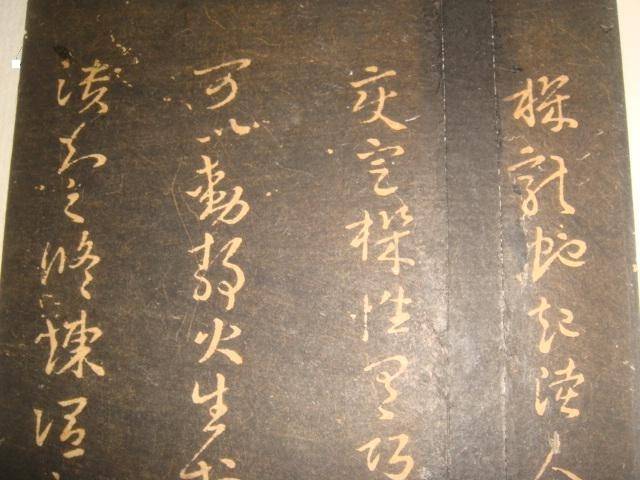 機龍蛇起陸人
變定機性有巧
可以動靜火生
潰知之修煉謂